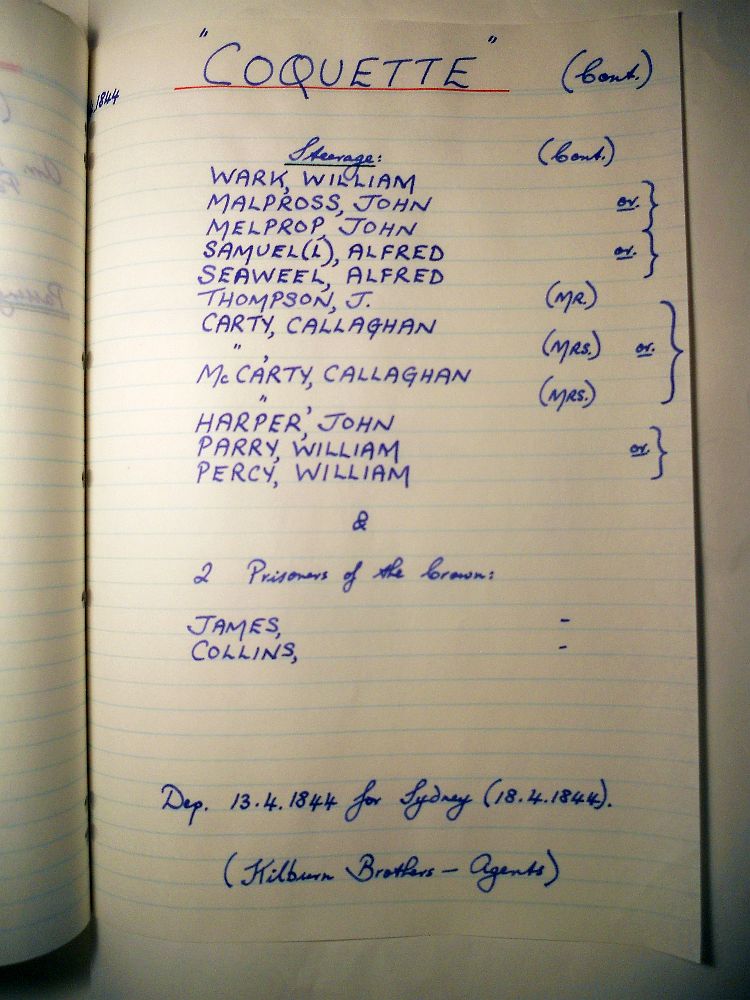 "COQUETTE" (Cont.)
.1844
Steerage: (Cont.)
WARK, WILLIAM
MALPROSS, JOHN or. }
MELPROP, JOHN
SAMUEL(L), ALFRED or. }
SEAWEEL, ALFRED
THOMPSON, J. (MR.)
CARTY, CALLAGHAN
" , (MRS.) or. }
McCARTY, CALLAGHAN
" , (MRS.)
HARPER, JOHN
PARRY, WILLIAM or. }
PERCY, WILLIAM
&
2 Prisoners of the Crown:
JAMES, -
COLLINS, -
Dep. 13.4.1844 for Sydney (18.4.1844).
(Kilburn Brothers - Agents)